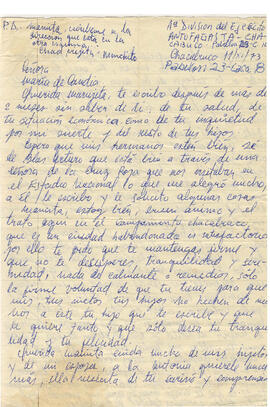 P.D. mamita, escríbeme a la
dirección que está en la
otra
Chao viejita - Monchito
1ª División del Ejército
ANTOFAGASTA - CHA-
CABUCO - Pabellón 23-C 1
Chacabuco 11/11/73
Pabellón 23-Casa 8
Señora
María de
Querida Mamita, te escribo después de más de
2 meses sin saber de ti, de tu salud, de
tu situación económica como de tu inquietud
por mi suerte y del resto de tus hijos
Espero que mis hermanos estén bien, sé
de Luis Arturo que está bien a través de una
señora de la Cruz Roja que nos visitaba en
el Estadio Nacional lo que me alegró mucho,
a él le escribo y le solicito algunas cosas
Mamita, estoy bien, buen ánimo y el
trato aquí en el campamento Chacabuco,
que es en verdad satisfactorio
por ello te pido que te mantengas firme y
que no te desesperes, tranquilidad y sere-
nidad, nada de calmante o remedios, solo
la firme voluntad de que tu tienes para que
mis, tus nietos tus hijos no hechen de me-
nos a este tu hijo que te escribe y que
te quiere tanto y que solo desea tu tranqui-
lidad y tu felicidad.
Querida mamita cuida mucho de mis hijitos
y de mi esposa, a la Antonia quierela mucho
más, ella necesita de tu cariño y comprensión